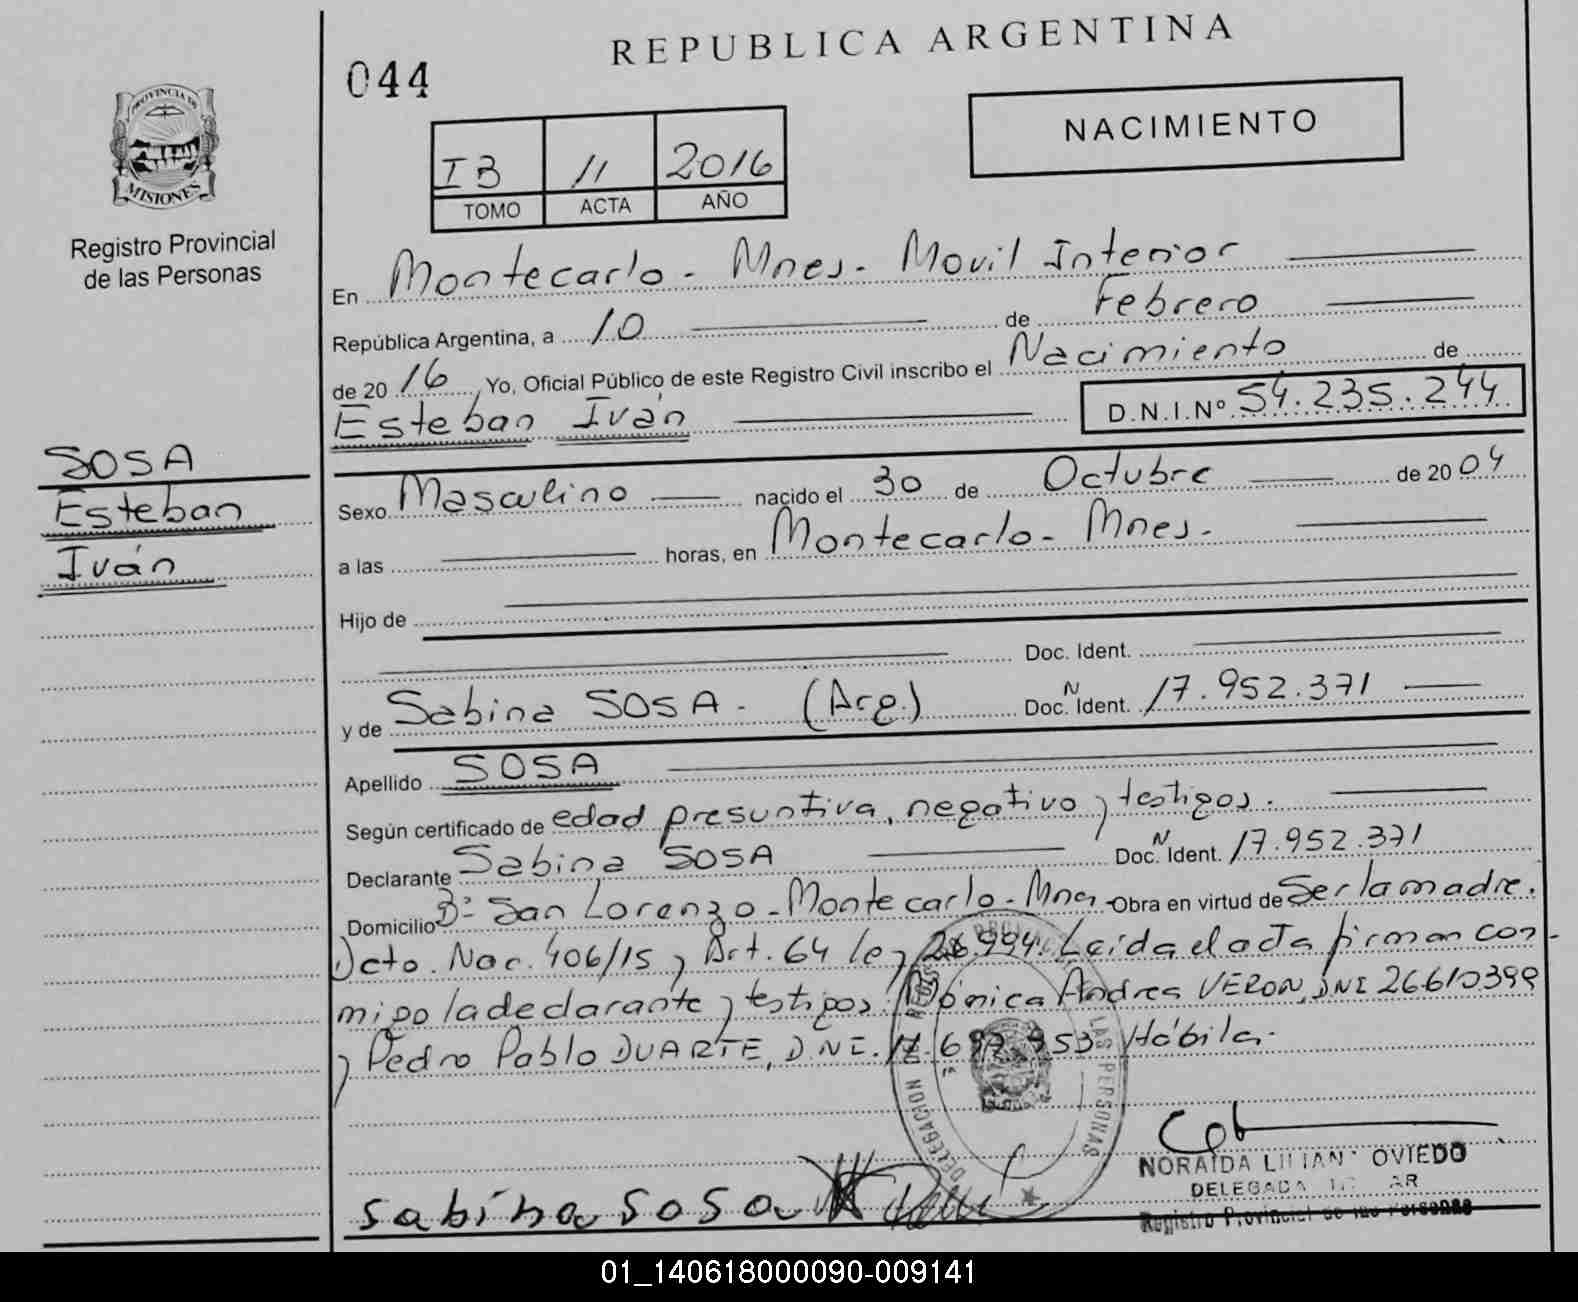 REPUBLICA ARGENTINA
044
NACIMIENTO
PROVINCIA DE
MISIONES
Registro Provincial
de las Personas
I B 11 2016
TOMO ACTA AÑO
En Montecarlo - Mnes - Movil Interior
República Argentina, a 10 de Febrero
de 20 16 Yo, Oficial Público de este Registro Civil inscribo el Nacimiento de
Esteban Iván D.N.I.Nº 54.235.244
SOSA
Esteban
Iván
Sexo Masculino nacido el 30 de Octubre de 20 04
a las horas, en Montecarlo - Mnes.
Hijo de
Doc. Ident.
y de Sabina SOSA - (Arg.) Doc. N Ident. 17.952.371
Apellido SOSA
Según certificado de edad presuntiva, negativo y testigos.
Declarante Sabina SOSA Doc. N Ident. 17.952.371
Domicilio Bº San Lorenzo - Montecarlo - Mnes - Obra en virtud de Ser la madre.
Dcto. Nac. 406/15 y Art. 64 ley 26.994. Leída el acta firman con-
migo la declarante y testigos: Mónica Andrea VERON, DNI 26610399
y Pedro Pablo DUARTE, DNI. 953 Hábiles.
DELEGACION
LAS PERSONAS
Sabina Sosa
NORAIDA LILIANA OVIEDO
DELEGADA
Registro Provincial de las Personas
01_140618000090-009141